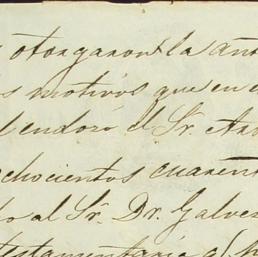 otorgaron la
s motivos que en
endozó el Sr.
ochocientos cuaren
al Sr. Dr. Galvez
testamentaria